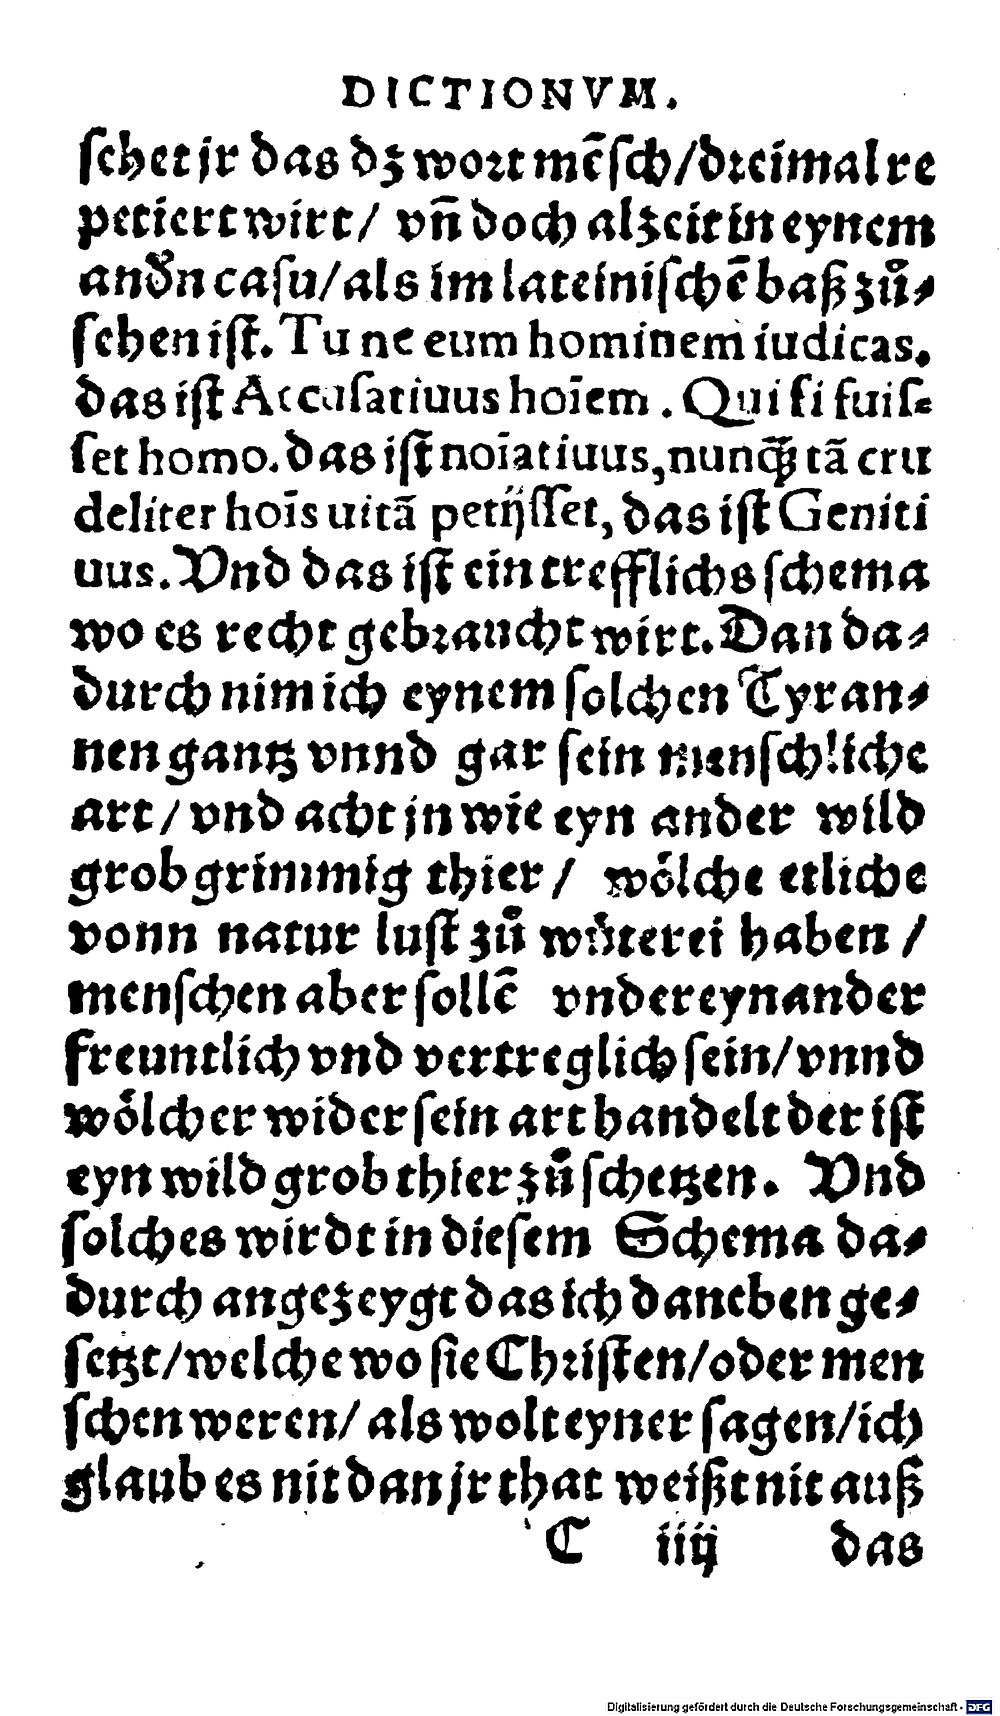 DICTIONVM.
schet jr das dz wort mēsch/dreimal re
petiert wirt/ vn̄ doch alzeit in eynem
andn casu/als im lateinischē baß zů⸗
schen ist. Tu ne eum hominem iudicas.
das ist Accusatiuus hoīem. Qui si fuis⸗
set homo. das ist noīatiuus, nunq̄ꝫ tā cru
deliter hoīs uitā petijsset, das ist Geniti
uus. Vnd das ist ein trefflichs schema
wo es recht gebraucht wirt. Dan da⸗
durch nim ich eynem solchen Tyran⸗
nen gantz vnnd gar sein menschliche
art/ vnd acht jn wie eyn ander wild
grob grimmig thier/ woͤlche etliche
vonn natur lust zů woͤterei haben/
menschen aber sollē vndereynander
freuntlich vnd vertreglich sein/vnnd
woͤlcher wider sein art handelt der ist
eyn wild grob thier zů schetzen. Vnd
solches wirdt in diesem Schema da⸗
durch angezeygt das ich daneben ge⸗
setzt/welche wo sie Christen/oder men
schen weren/ als wolt eyner sagen/ich
glaub es nit dan jr that weißt nit auß
C iiij das
Digitalisierung gefördert durch die Deutsche Forschungsgemeinschaft - DFG